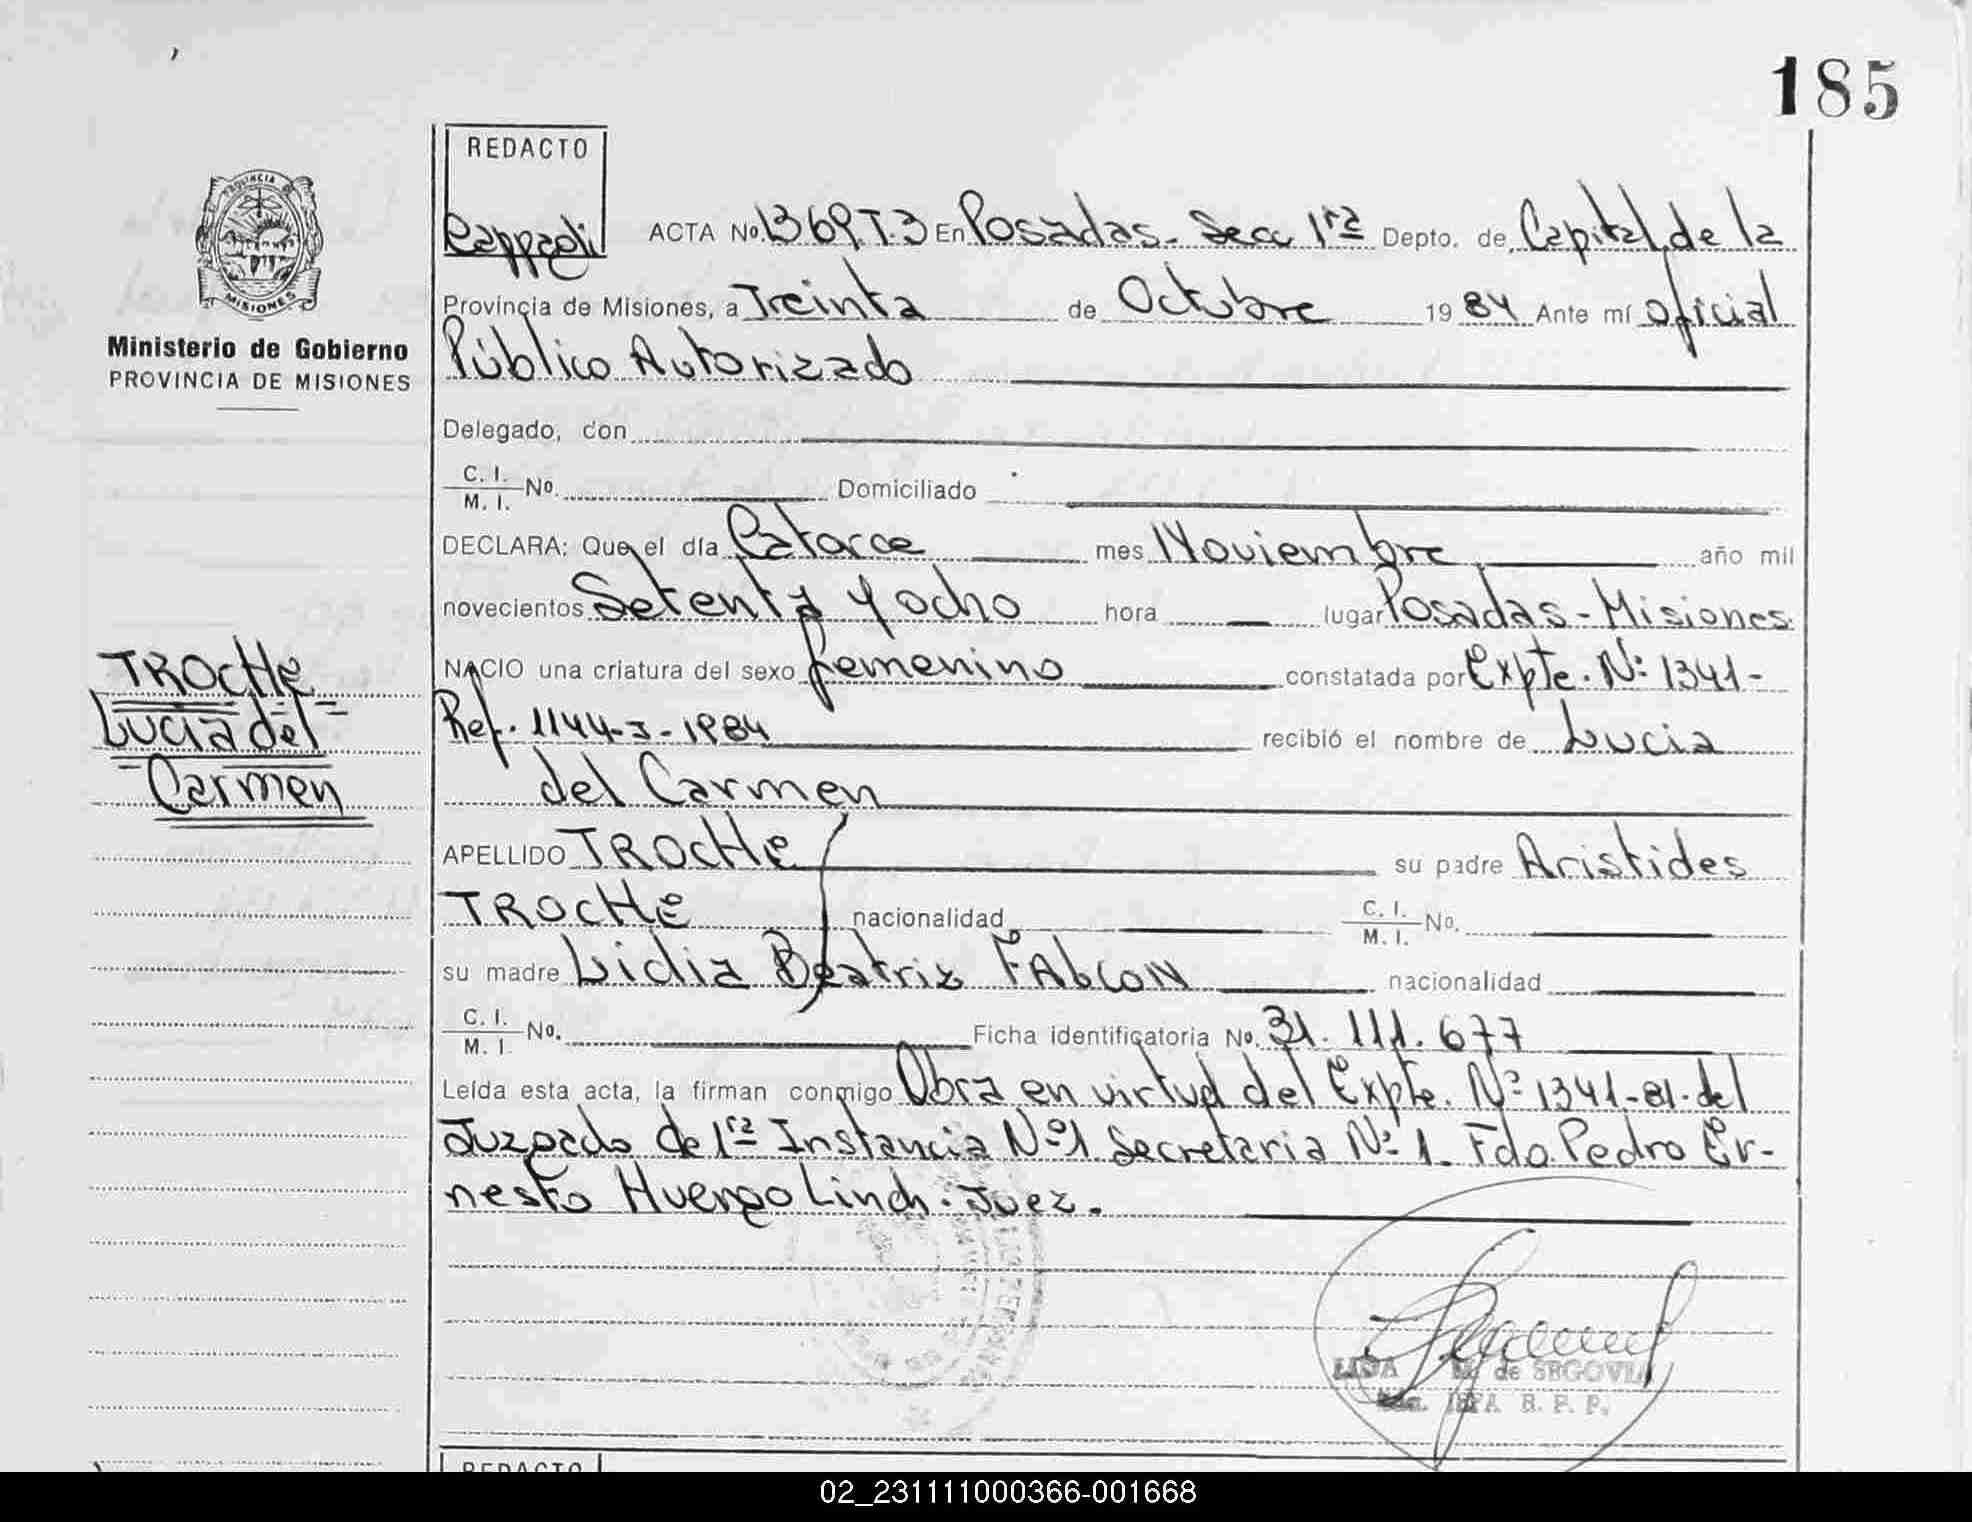 185
REDACTO
Cappaeli
PROVINCIA DE
MISIONES
Ministerio de Gobierno
PROVINCIA DE MISIONES
ACTA No. 1369.T.3 En Posadas - Secc 1ra Depto. de Capital de la
Provincia de Misiones, a Treinta de Octubre 1984 Ante mí Oficial
Público Autorizado
Delegado, con
C. I.
M. I. No. Domiciliado
DECLARA: Que el día Catorce mes Noviembre año mil
novecientos Setenta y ocho hora lugar Posadas - Misiones
NACIO una criatura del sexo femenino constatada por Expte. Nº 1341-
Ref. 1144-J-1984 recibió el nombre de Lucia
del Carmen
TROCHE
Lucia del
Carmen
APELLIDO TROCHE su padre Aristides
TROCHE nacionalidad C. I.
M. I. No.
su madre Lidia Beatriz FALCON nacionalidad
C. I.
M. I. No. Ficha identificatoria No. 31.111.677
Leída esta acta, la firman conmigo Obra en virtud del Expte. Nº 1341-81. del
Juzgado de 1ra Instancia Nº 1 Secretaria Nº 1. Fdo Pedro Er-
nesto Huergo Linch. Juez.
LIDA M. de SEGOVIA
R. P. P.
REDACTO
02_231111000366-001668